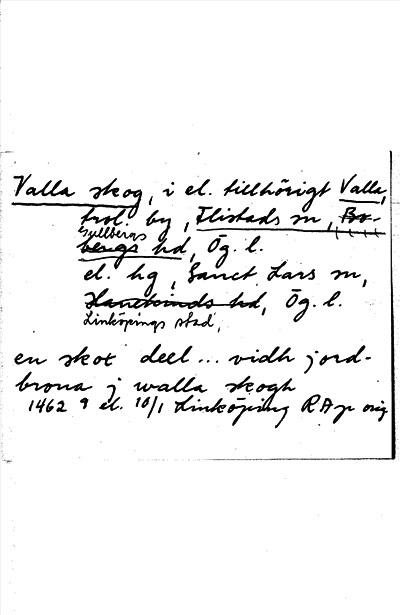 Valla skog, i el. tillhörigt Valla,
trol. by, Flistads sn, Bo-
Gullbergs
bergs hd, Ög. l.
el. hg, Sanct Lars sn,
Hanekinds hd, Ög. l.
Linköpings stad,
en skot deel... vidh jord-
brona j walla skogh
1462 9 el. 10/1 Linköping RAp orig